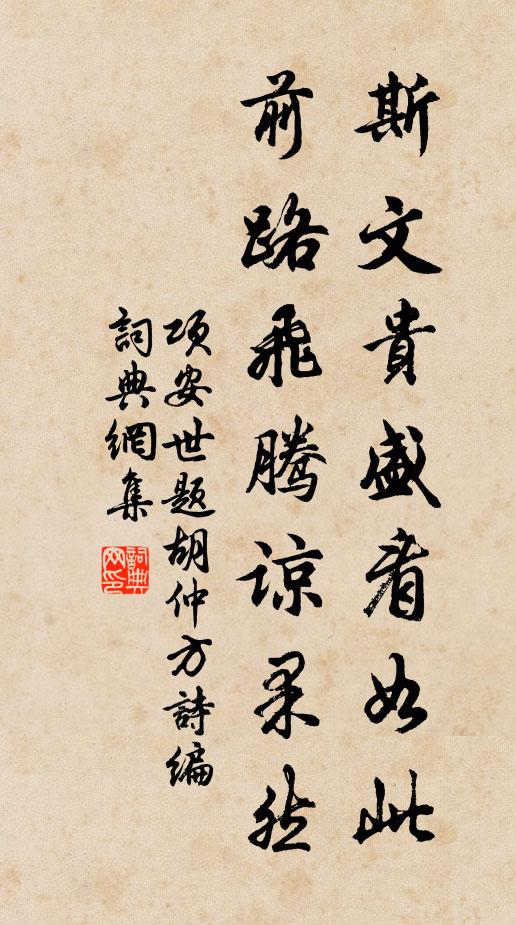 斯文貴盛者如此
前路飛騰諒果然
項安世題胡仲方詩編
詞典網集
詞典網印